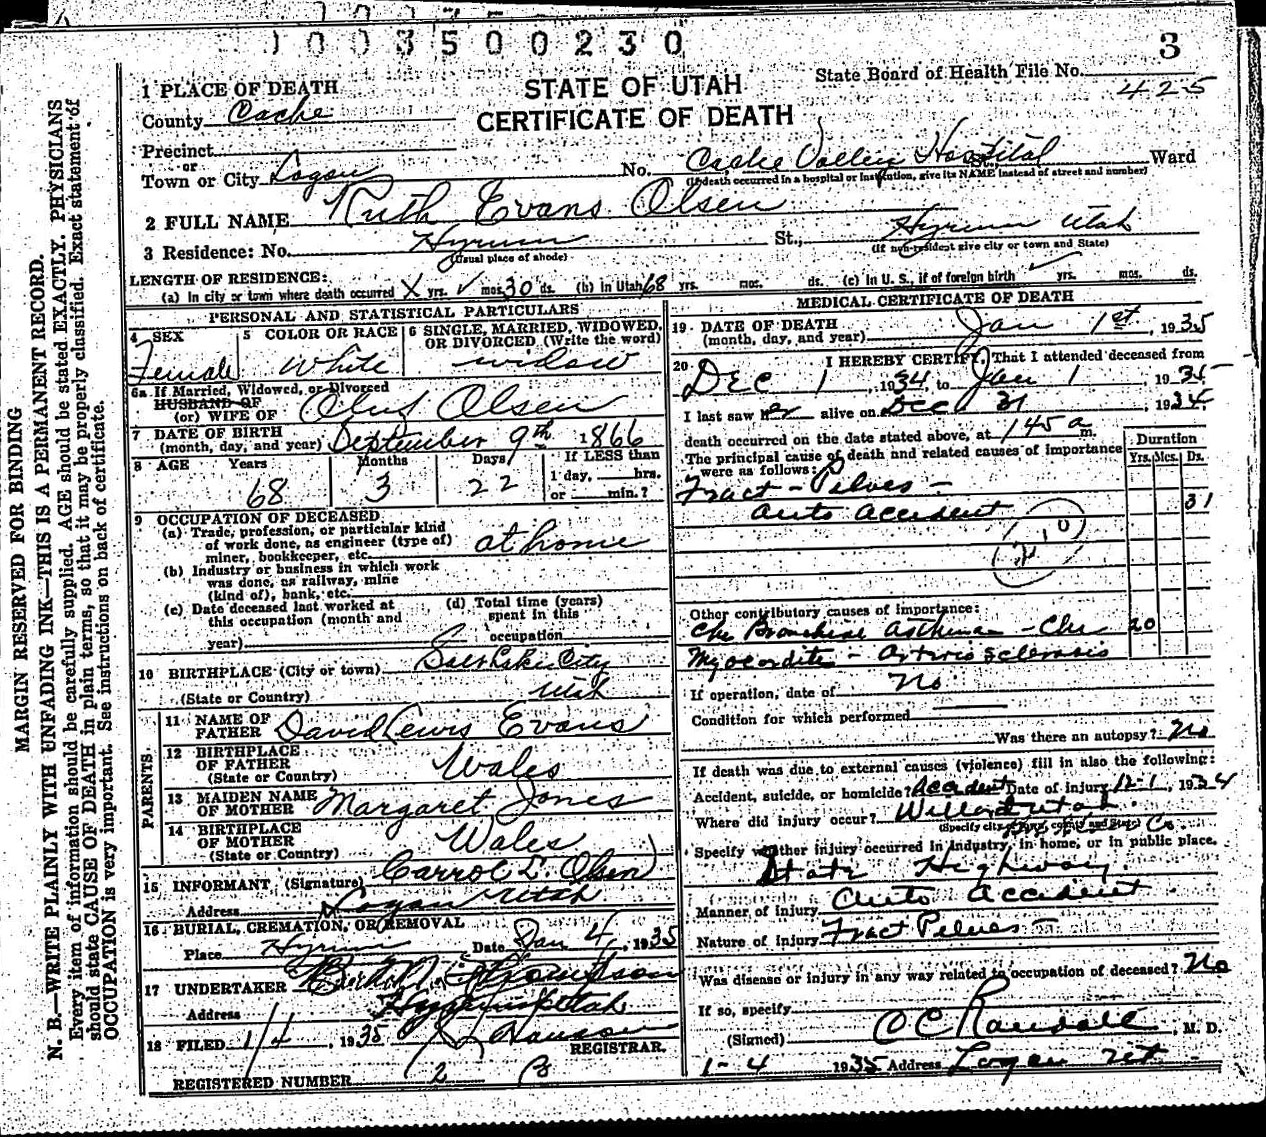 1003500230
3
STATE OF UTAH
CERTIFICATE OF DEATH
State Board of Health File No.
425
1 PLACE OF DEATH
County Cache
Precinct
or
Town or City Logan No. Cache Valley Hospital St., Ward
(If death occurred in a hospital or institution, give its NAME instead of street and number)
2 FULL NAME Ruth Evans Olsen
3 Residence: No. Hyrum St., Hyrum Utah
(Usual place of abode) (If non-resident give city or town and State)
LENGTH OF RESIDENCE:
(a) In city or town where death occurred X yrs. ✓ mos. 30 ds. (b) In Utah 68 yrs. mos. ds. (c) In U. S., if of foreign birth ✓ yrs. mos. ds.
PERSONAL AND STATISTICAL PARTICULARS
4 SEX Female
5 COLOR OR RACE White
6 SINGLE, MARRIED, WIDOWED, OR DIVORCED (Write the word) widow
6a If Married, Widowed, or Divorced
HUSBAND OF
(or) WIFE OF Oluf Olsen
7 DATE OF BIRTH
(month, day, and year) September 9th 1866
8 AGE Years 68 Months 3 Days 22 If LESS than
1 day, hrs.
or min.?
9 OCCUPATION OF DECEASED
(a) Trade, profession, or particular kind
of work done, as engineer (type of)
miner, bookkeeper, etc. at home
(b) Industry or business in which work
was done, as railway, mine
(kind of), bank, etc.
(c) Date deceased last worked at
this occupation (month and
year)
(d) Total time (years)
spent in this
occupation
10 BIRTHPLACE (City or town) Salt Lake City
(State or Country) Utah
PARENTS
11 NAME OF
FATHER David Lewis Evans
12 BIRTHPLACE
OF FATHER
(State or Country) Wales
13 MAIDEN NAME
OF MOTHER Margaret Jones
14 BIRTHPLACE
OF MOTHER
(State or Country) Wales
15 INFORMANT (Signature) Carrol E. Olsen
Address Logan Utah
16 BURIAL, CREMATION, OR REMOVAL
Place Hyrum Date Jan 4, 1935
17 UNDERTAKER Thompson
Address Hyrum Utah
18 FILED 1/4, 1935
REGISTRAR.
REGISTERED NUMBER 2 B
MEDICAL CERTIFICATE OF DEATH
19 DATE OF DEATH
(month, day, and year) Jan 1st, 1935
20 I HEREBY CERTIFY, That I attended deceased from
Dec 1, 1934, to Jan 1, 1935
I last saw her alive on Dec 31, 1934,
death occurred on the date stated above, at 145 a m.
The principal cause of death and related causes of importance
were as follows:
Duration
Yrs. Mos. Ds.
Fract - Pelves -
31
auto accident
210
Other contributory causes of importance:
Chr Bronchial Asthma - Chr 20
Myocarditis - Arterio Sclerosis
If operation, date of No.
Condition for which performed
Was there an autopsy? No
If death was due to external causes (violence) fill in also the following:
Accident, suicide, or homicide? Accident Date of injury 12-1, 1934
Where did injury occur? Willard Utah
(Specify city or town, county and State) Co.
Specify whether injury occurred in industry, in home, or in public place.
State Highway
Manner of injury Auto Accident
Nature of injury Fract Pelves
Was disease or injury in any way related to occupation of deceased? No
If so, specify
(Signed) O C Randall, M. D.
1-4 1935 Address Logan Ut
MARGIN RESERVED FOR BINDING
N. B.—WRITE PLAINLY WITH UNFADING INK—THIS IS A PERMANENT RECORD.
Every item of information should be carefully supplied. AGE should be stated EXACTLY. PHYSICIANS
should state CAUSE OF DEATH in plain terms, so that it may be properly classified. Exact statement of
OCCUPATION is very important. See instructions on back of certificate.